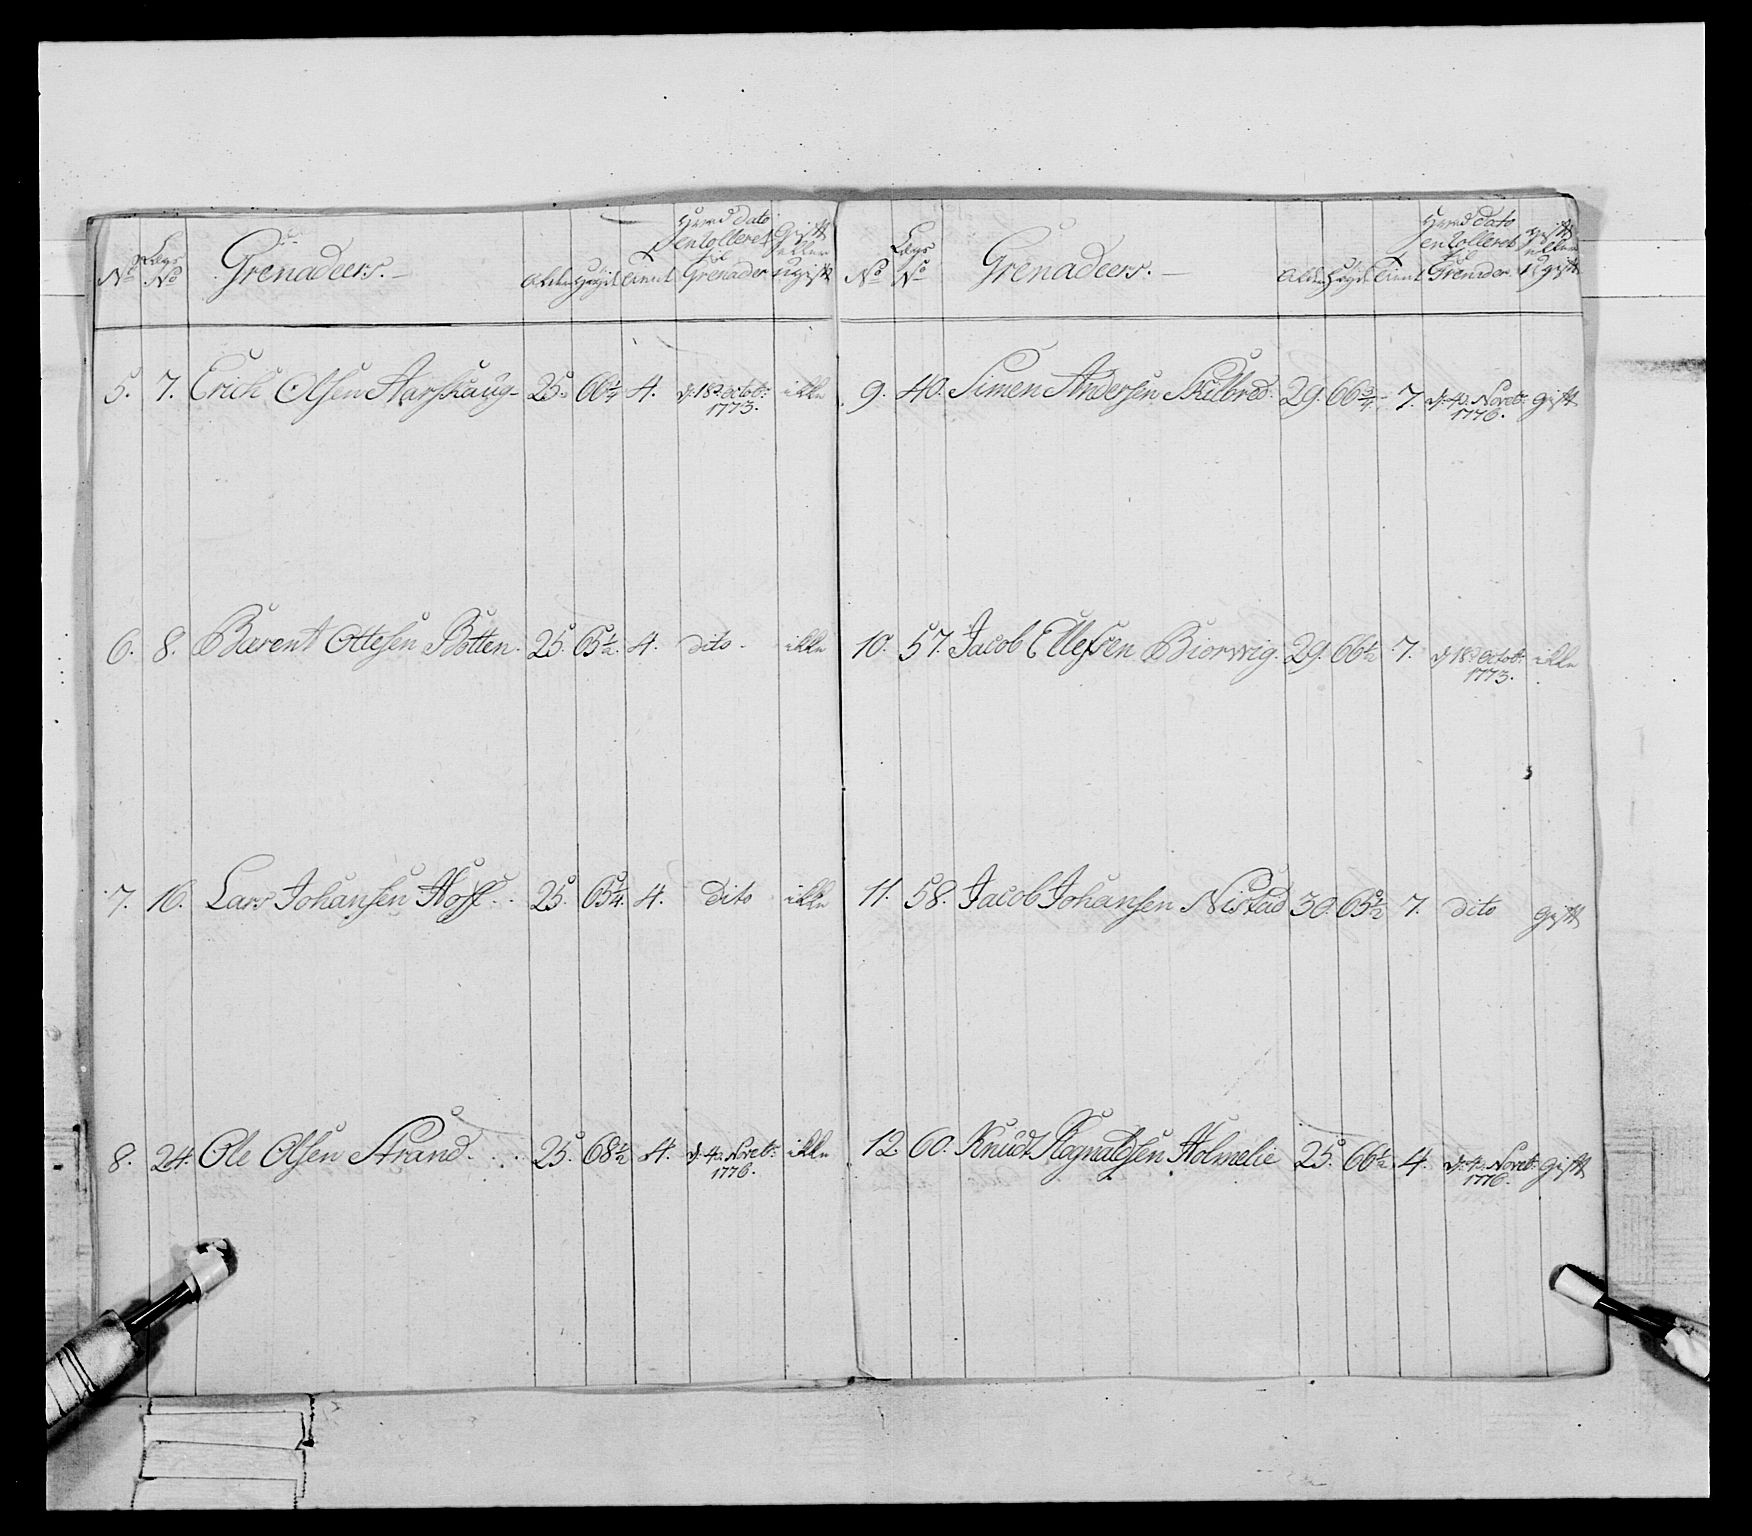 No Lægs No Grenadeers. Alder Høyde Tient Hvad Dato enrolleret til Grenader Gift eller ugift
5. 7. Erich Olsen Aarshaug 25. 66 1/4 4. d: 18de octob: 1773. ikke
6. 8. Bærent Ottesen Botten. 25. 65 1/2. 4. dito. ikke
7. 16. Lars Johansen Hoff. 25. 65 1/4. 4. Dito ikke
8. 24. Ole Olsen Strand. 25. 68 1/2 4. d: 4de Novebr: 1776. ikke
No Lægs No Grenadeers. Alder Høyde Tient Hvad dato enrolleret til Grenader gift eller Ugift
9. 40. Simen Andersen Skilbred. 29. 66 3/4. 7. d: 4de Novebr: 1776. gift
10. 57. Jacob Ellefsen Biorvig. 29. 66 1/2 7. d: 18de octob: 1773. ikke
11. 58. Jacob Johansen Nistad 30. 65 1/2 7. dito gift
12 60. Knudt Rognaldsen Holmelie 25. 66 1/2. 4. d: 4de Novebr: 1776. gift